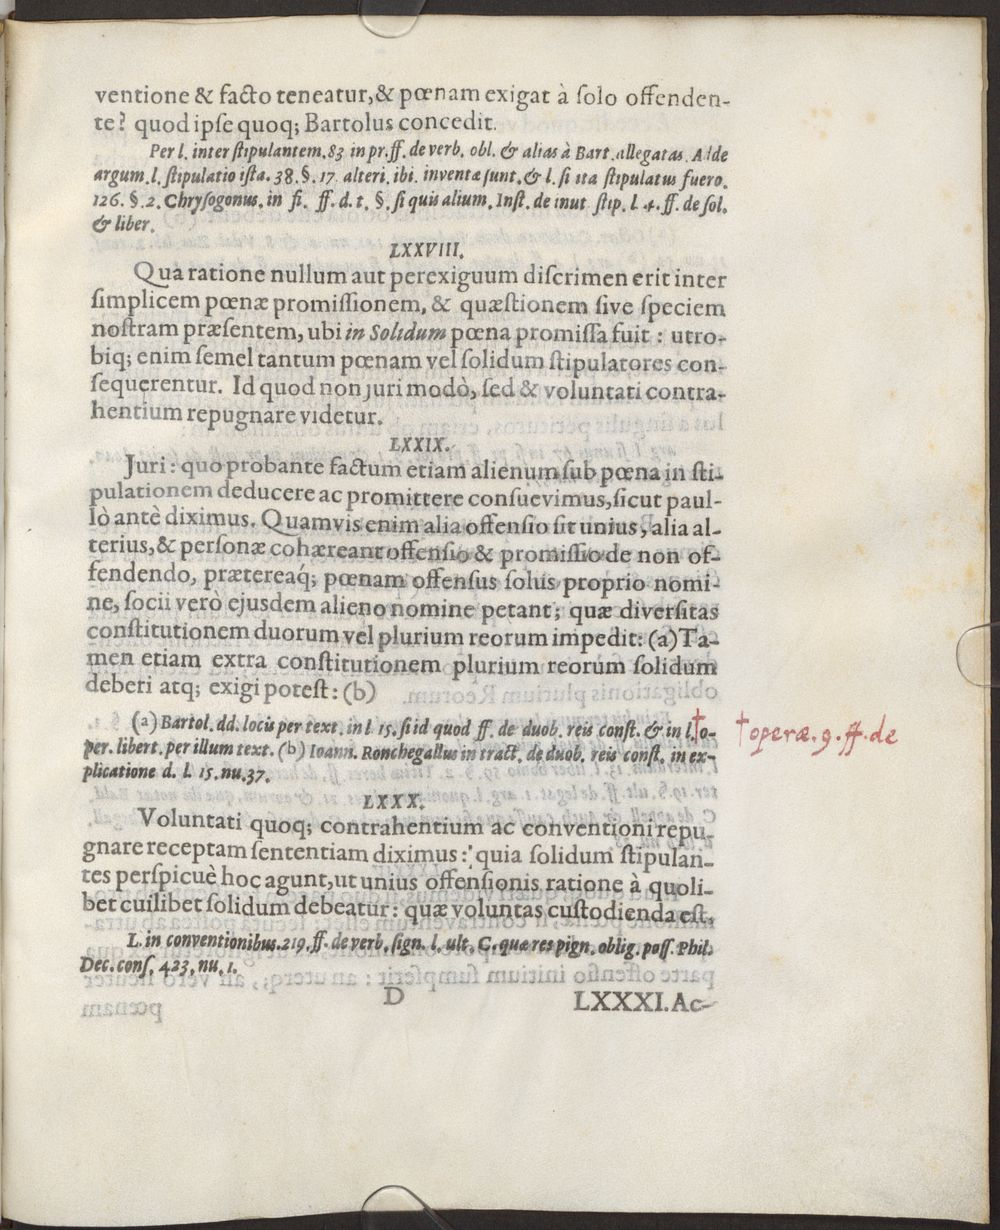 ventione & facto teneatur, & pœnam exigat à ſolo offenden-
te? quod ipſe quoq; Bartolus concedit.
Per l. inter ſtipulantem. 83 in pr. ff. de verb. obl. & alias à Bart. allegatas. Adde
argum. l. ſtipulatio iſta. 38. §. 17. alteri. ibi. inventæ ſunt. & l. ſi ita ſtipulatus fuero.
126. §. 2. Chryſogonus. in fi. ff. d. t. §. ſi quis alium. Inſt. de inut ſtip. l. 4. ff. de ſol.
& liber.
LXXVIII.
Qua ratione nullum aut perexiguum diſcrimen erit inter
ſimplicem pœnæ promiſſionem, & quæſtionem ſive ſpeciem
noſtram præſentem, ubi in Solidum pœna promiſſa fuit : utro-
biq; enim ſemel tantum pœnam vel ſolidum ſtipulatores con-
ſequerentur. Id quod non juri modò, ſed & voluntati contra-
hentium repugnare videtur.
LXXIX.
Juri : quo probante factum etiam alienum ſub pœna in ſti-
pulationem deducere ac promittere conſuevimus, ſicut paul-
lò antè diximus. Quamvis enim alia offenſio ſit unius, alia al-
terius, & perſonæ cohæreant offenſio & promiſſio de non of-
fendendo, prætereaq́; pœnam offenſus ſolus proprio nomi-
ne, ſocii verò ejusdem alieno nomine petant; quæ diverſitas
conſtitutionem duorum vel plurium reorum impedit: (a) Ta-
men etiam extra conſtitutionem plurium reorum ſolidum
deberi atq; exigi poteſt: (b)
(a) Bartol. dd. locis per text. in l 15. ſi id quod ff. de duob. reis conſt. & in l.† o-
per. libert. per illum text. (b) Ioann. Ronchegallus in tract. de duob. reis conſt. in ex-
plicatione d. l. 15. nu. 37.
† operæ. 9. ff. de
LXXX.
Voluntati quoq; contrahentium ac conventioni repu-
gnare receptam ſententiam diximus : quia ſolidum ſtipulan-
tes perſpicuè hoc agunt, ut unius offenſionis ratione à quoli-
bet cuilibet ſolidum debeatur : quæ voluntas cuſtodienda eſt.
L. in conventionibus. 219. ff. de verb. ſign. l. ult. C. quæ res pign. oblig. poſſ. Phil.
Dec. conſ. 423, nu. 1.
D
LXXXI. Ac-